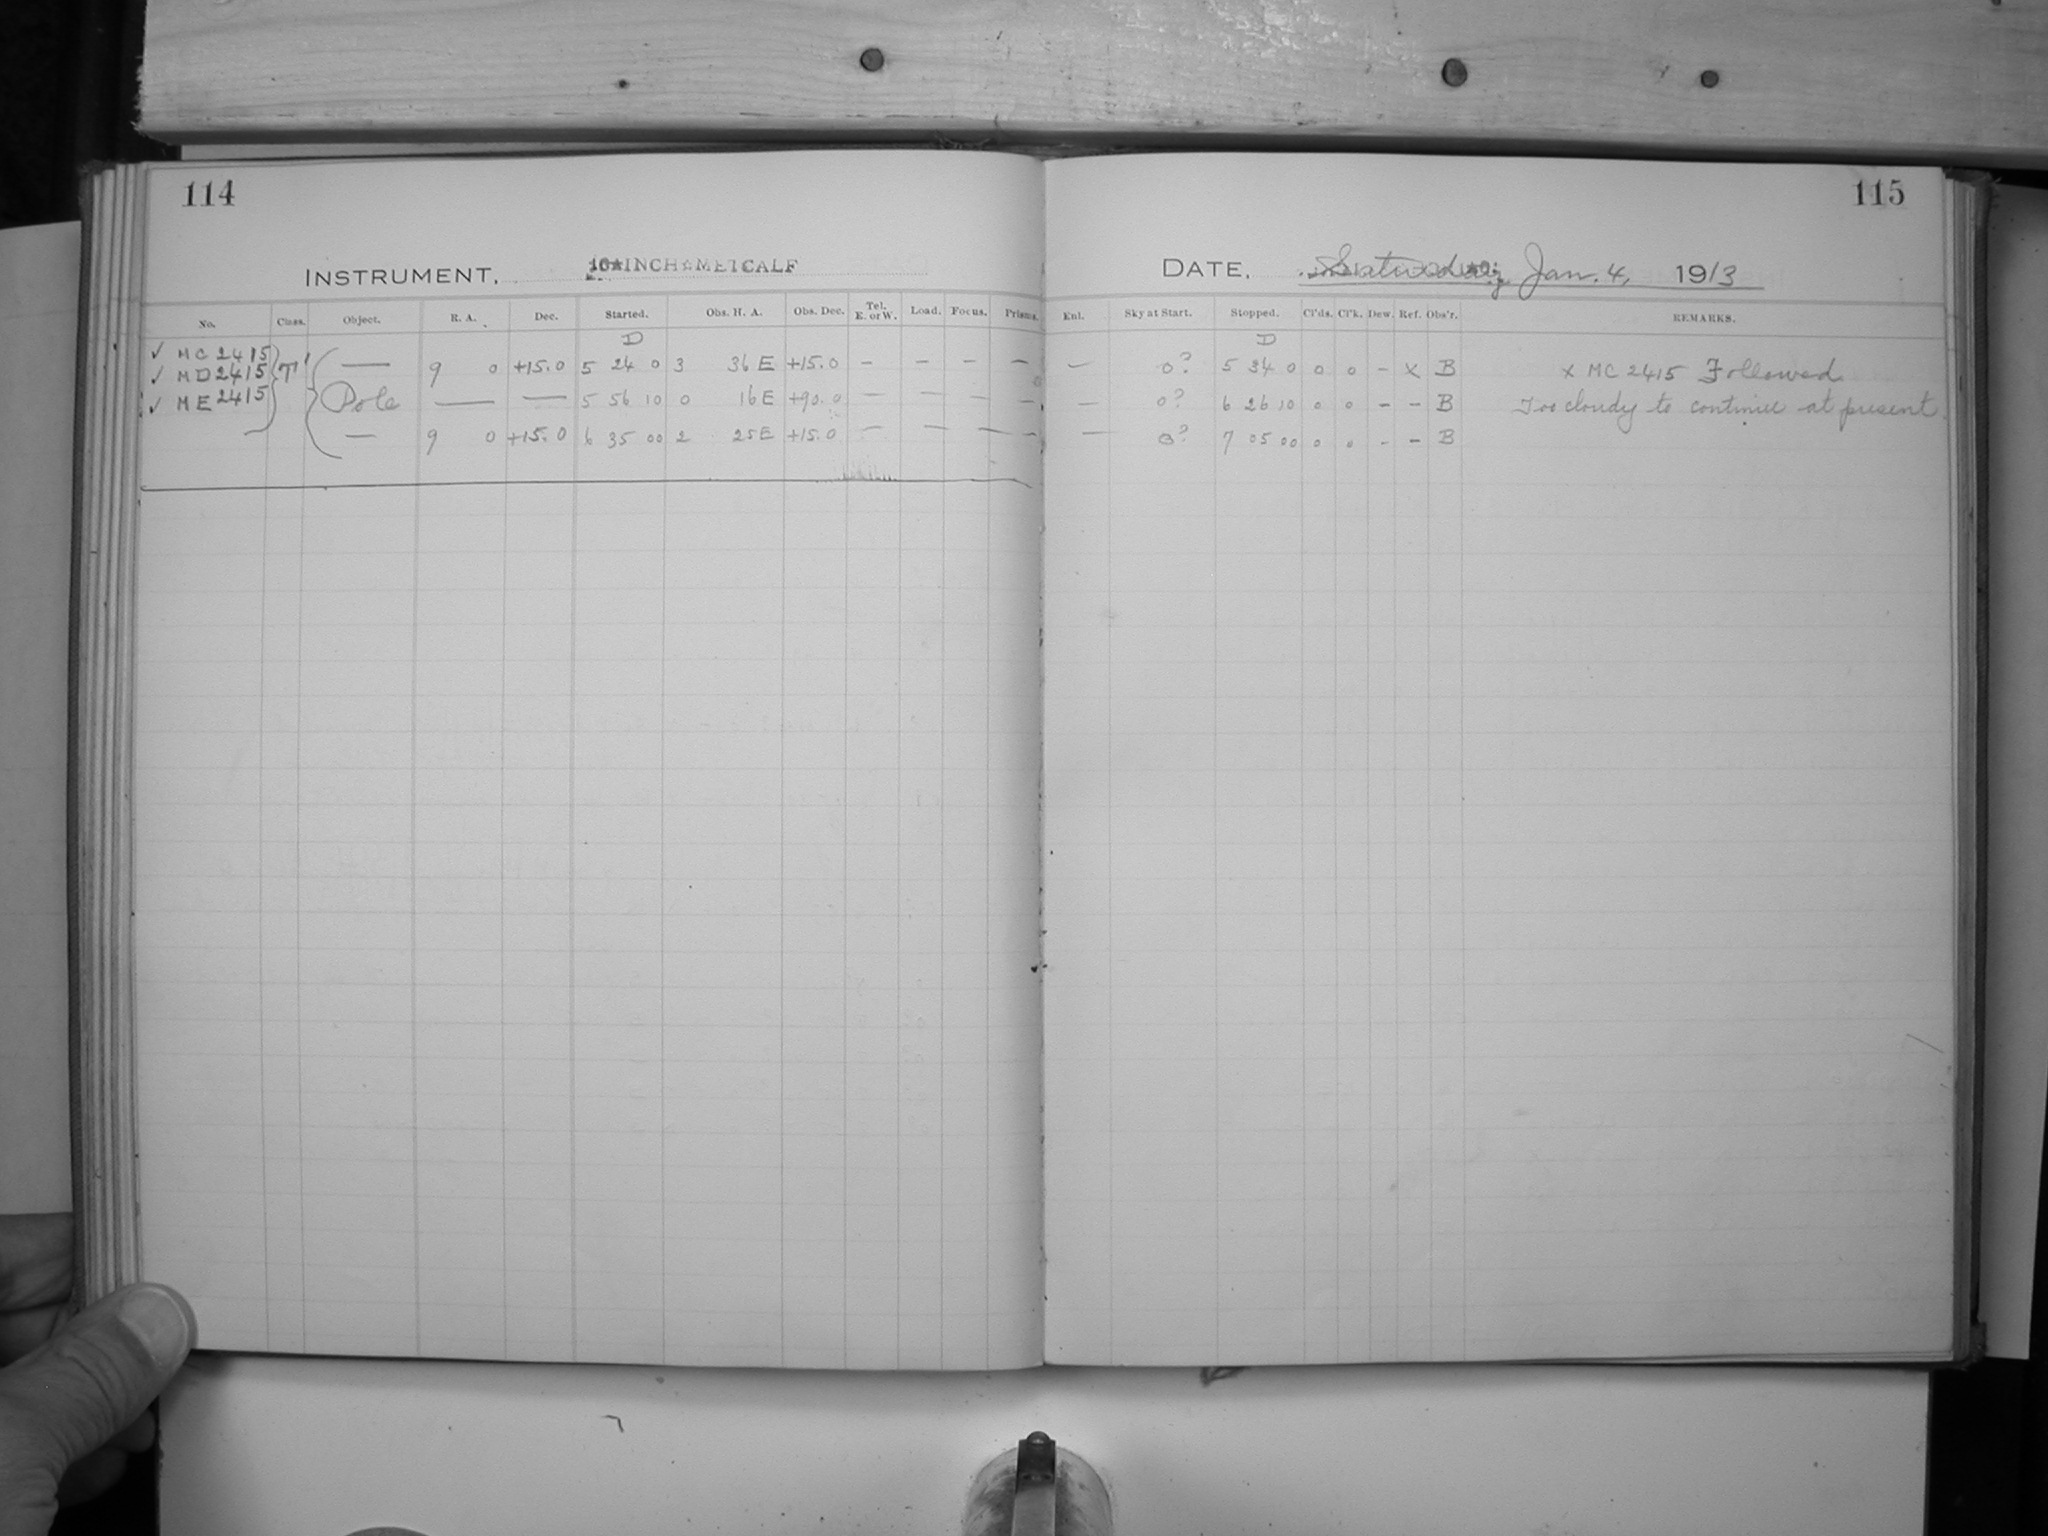 114
115
INSTRUMENT, 10★INCH☆METCALF
DATE, Saturday Jan. 4, 1913
No. Class. Object. R. A. Dec. Started. Obs. H. A. Obs. Dec. Tel. E. or W. Load. Focus. Prisms. Enl. Sky at Start. Stopped. Cl'ds. Cl'k. Dew. Ref. Obs'r. REMARKS.
D D
✓ MC 2415 T' — 9 0 +15.0 5 24 0 3 36 E +15.0 – — – — — 0? 5 34 0 0 0 – x B x MC 2415 Followed
✓ MD 2415 Pole — — 5 56 10 0 16 E +90.0 — — – – — 0? 6 26 10 0 0 – – B Too cloudy to continue at present.
✓ ME 2415 — 9 0 +15.0 6 35 00 2 25 E +15.0 — — — – — 0? 7 05 00 0 0 – – B